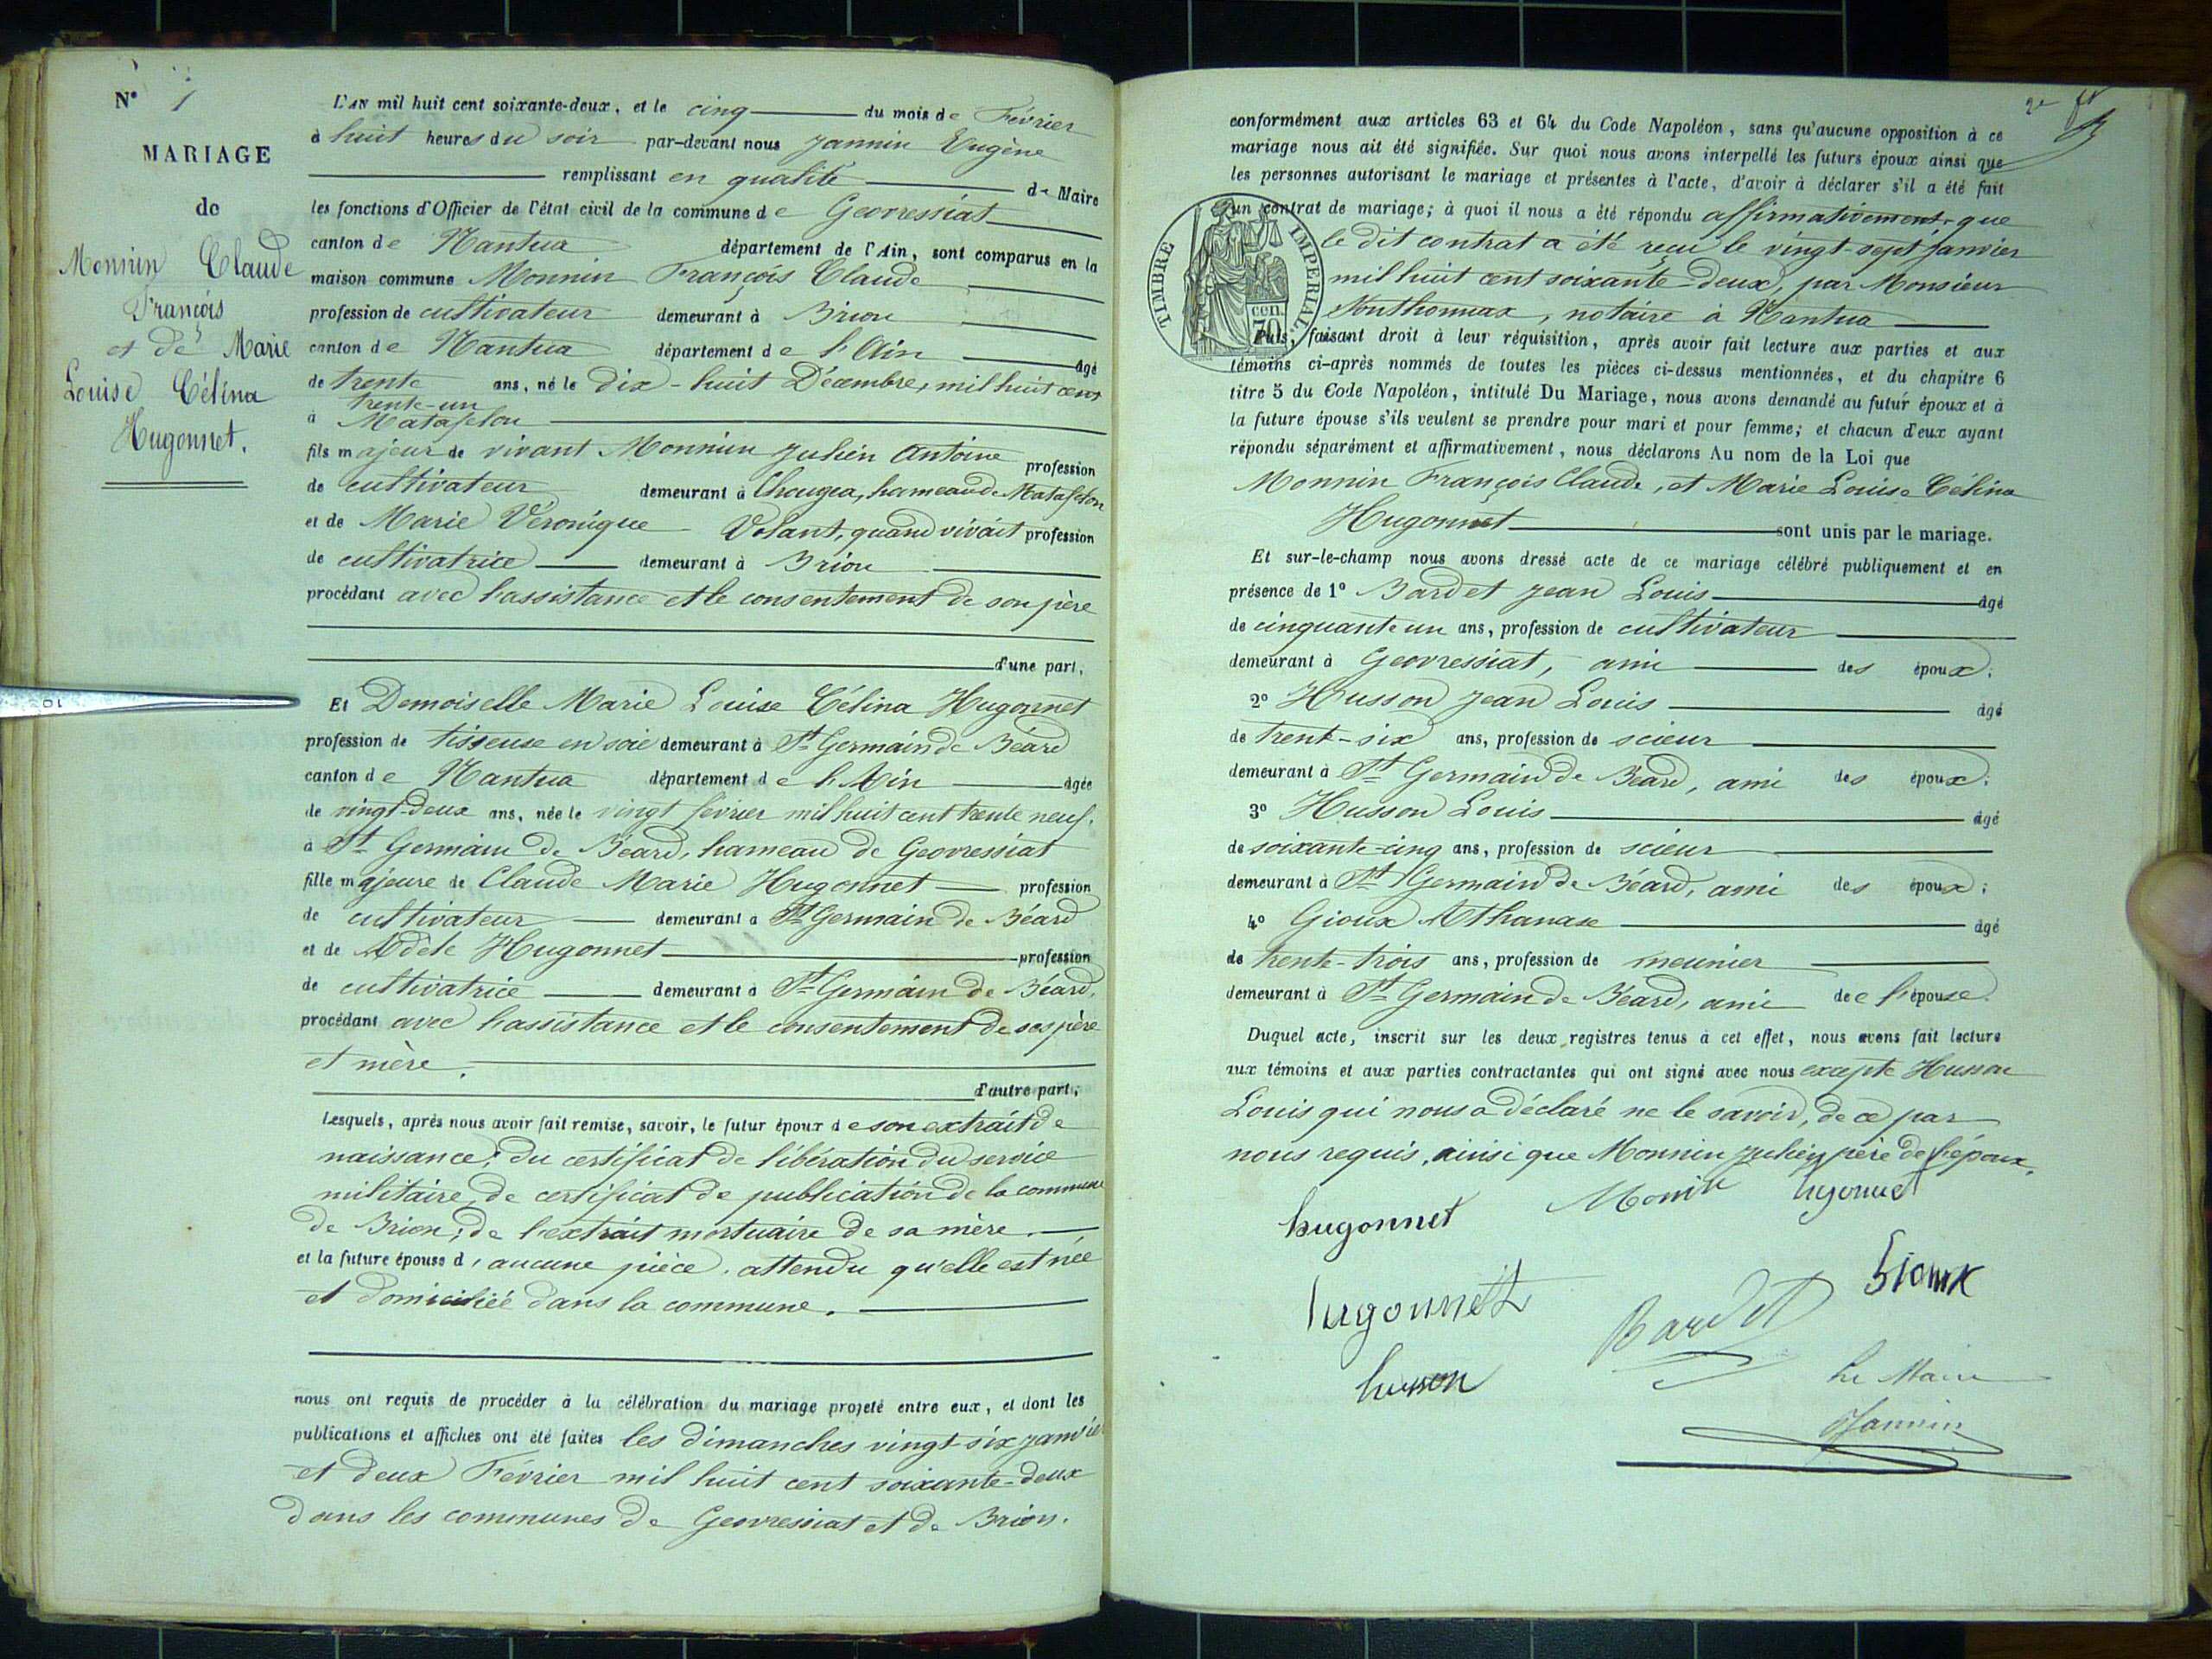 N° 1
MARIAGE
de
Monnin Claude
François
et de Marie
Louise Célina
Hugonnet.
L'AN mil huit cent soixante-deux, et le cinq du mois de Février
à huit heures du soir par-devant nous Jannin Eugène
remplissant en qualité de Maire
les fonctions d'Officier de l'état civil de la commune de Geovressiat
canton de Nantua département de l'Ain, sont comparus en la
maison commune Monnin François Claude
profession de cultivateur demeurant à Brion
canton de Nantua département de l'Ain âgé
de trente ans, né le dix-huit Décembre, mil huit cent
trente-un
à Matafelon
fils majeur de vivant Monnin Julien Antoine profession
de cultivateur demeurant à Chougea, hameau de Matafelon
et de Marie Véronique Volant, quand vivait profession
de cultivatrice demeurant à Brion
procédant avec l'assistance et le consentement de son père
d'une part,
Et Demoiselle Marie Louise Célina Hugonnet
profession de tisseuse en soie demeurant à St Germain de Béard
canton de Nantua département de l'Ain âgée
de vingt-deux ans, née le vingt février mil huit cent trente neuf.
à St Germain de Béard, hameau de Geovressiat
fille majeure de Claude Marie Hugonnet profession
de cultivateur demeurant à St Germain de Béard
et de Adèle Hugonnet profession
de cultivatrice demeurant à St Germain de Béard,
procédant avec l'assistance et le consentement de ses père
et mère.
d'autre part;
Lesquels, après nous avoir fait remise, savoir, le futur époux de son extrait de
naissance; du certificat de libération du service
militaire, de certificat de publication de la commune
de Brion; de l'extrait mortuaire de sa mère.
et la future épouse d'aucune pièce, attendu qu'elle est née
et domiciliée dans la commune.
nous ont requis de procéder à la célébration du mariage projeté entre eux, et dont les
publications et affiches ont été faites les dimanches vingt-six janvier
et deux Février mil huit cent soixante-deux
dans les communes de Geovressiat et de Brion.
2e
conformément aux articles 63 et 64 du Code Napoléon, sans qu'aucune opposition à ce
mariage nous ait été signifiée. Sur quoi nous avons interpellé les futurs époux ainsi que
les personnes autorisant le mariage et présentes à l'acte, d'avoir à déclarer s'il a été fait
un contrat de mariage; à quoi il nous a été répondu affirmativement, que
le dit contrat a été reçu le vingt-sept janvier
mil huit cent soixante-deux, par Monsieur
notaire à Nantua
TIMBRE IMPERIAL
70 cen.
Puis, faisant droit à leur réquisition, après avoir fait lecture aux parties et aux
témoins ci-après nommés de toutes les pièces ci-dessus mentionnées, et du chapitre 6
titre 5 du Code Napoléon, intitulé Du Mariage, nous avons demandé au futur époux et à
la future épouse s'ils veulent se prendre pour mari et pour femme; et chacun d'eux ayant
répondu séparément et affirmativement, nous déclarons Au nom de la Loi que
Monnin François Claude, et Marie Louise Célina
Hugonnet sont unis par le mariage.
Et sur-le-champ nous avons dressé acte de ce mariage célébré publiquement et en
présence de 1° Bardet Jean Louis âgé
de cinquante un ans, profession de cultivateur
demeurant à Geovressiat, ami des époux;
2° Husson Jean Louis âgé
de trente-six ans, profession de scieur
demeurant à St Germain de Béard, ami des époux;
3° Husson Louis âgé
de soixante-cinq ans, profession de scieur
demeurant à St Germain de Béard, ami des époux;
4° Gioux Athanase âgé
de trente-trois ans, profession de meunier
demeurant à St Germain de Béard, ami de l'épouse.
Duquel acte, inscrit sur les deux registres tenus à cet effet, nous avons fait lecture
aux témoins et aux parties contractantes qui ont signé avec nous excepté Husson
Louis qui nous a déclaré ne le savoir, de ce par
nous requis, ainsi que Monnin Julien père de l'époux.
hugonnet Monin hugonnet
hugonnet Bardet Gioux
husson Le Maire
Jannin